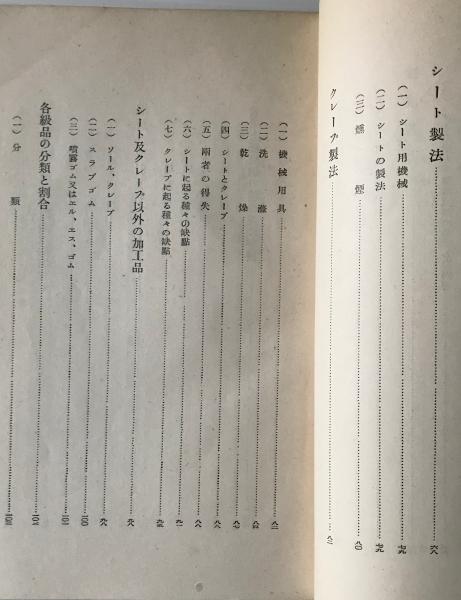 シート製法……六八
(一) シート用機械……七九
(二) シートの製法……七九
(三) 燻煙……八〇
クレープ製法……八二
(一) 機械用具……八二
(二) 洗滌……八四
(三) 乾燥……八六
(四) シートとクレープ……八七
(五) 兩者の得失……八八
(六) シートに起る種々の缺點……九一
(七) クレープに起る種々の缺點……九五
シート及クレープ以外の加工品……九八
(一) ソール、クレープ……九八
(二) スラブゴム……100
(三) 噴霧ゴム又はエル、エス、ゴム……101
各級品の分類と割合……
(一) 分類……